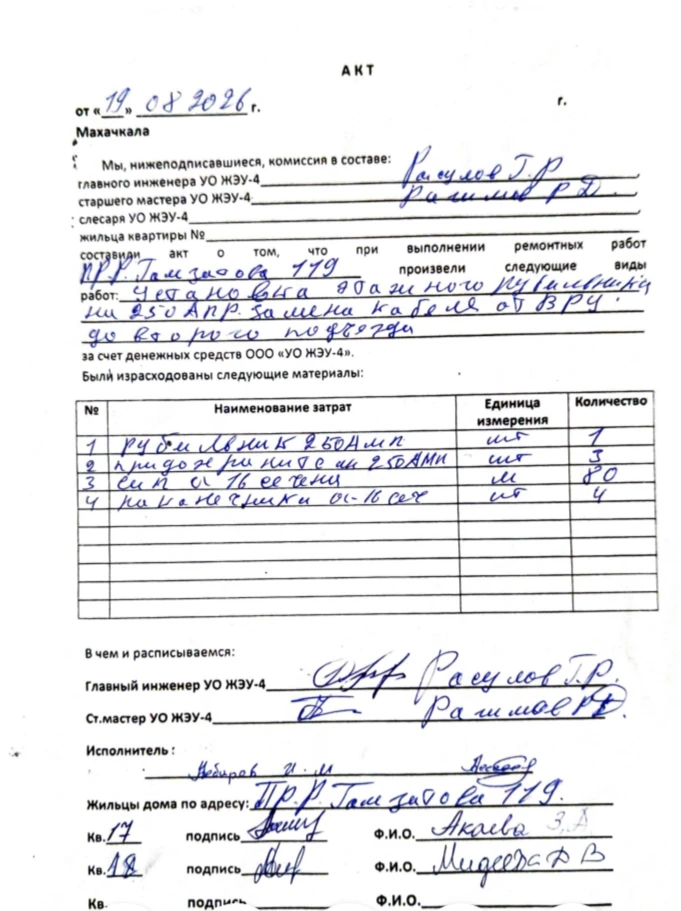 АКТ
от «19» 08 2026 г. г.
Махачкала
Мы, нижеподписавшиеся, комиссия в составе:
главного инженера УО ЖЭУ-4 Расулов Г.Р
старшего мастера УО ЖЭУ-4 Рагимов Р Д.
слесаря УО ЖЭУ-4
жильца квартиры №
составили акт о том, что при выполнении ремонтных работ
ПР.Р.Гамзатова 119 произвели следующие виды
работ: Установка этажного рубильника
на 250 Апр. замена кабеля от ВРУ.
до второго подъезда
за счет денежных средств ООО «УО ЖЭУ-4».
Были израсходованы следующие материалы:
№ Наименование затрат Единица измерения Количество
1 рубильник 250Амп шт 1
2 250Амп шт 3
3 сип 16 сечени м 80
4 наканечники 16 сеч шт 4
В чем и расписываемся:
Главный инженер УО ЖЭУ-4 Расулов Г.Р.
Ст.мастер УО ЖЭУ-4 Рагимов РД.
Исполнитель :
И. М
Жильцы дома по адресу: ПР.Р.Гамзатова 119.
Кв. 17 подпись Ф.И.О. Акаева З.А
Кв. 18 подпись Ф.И.О.
Кв. подпись Ф.И.О.